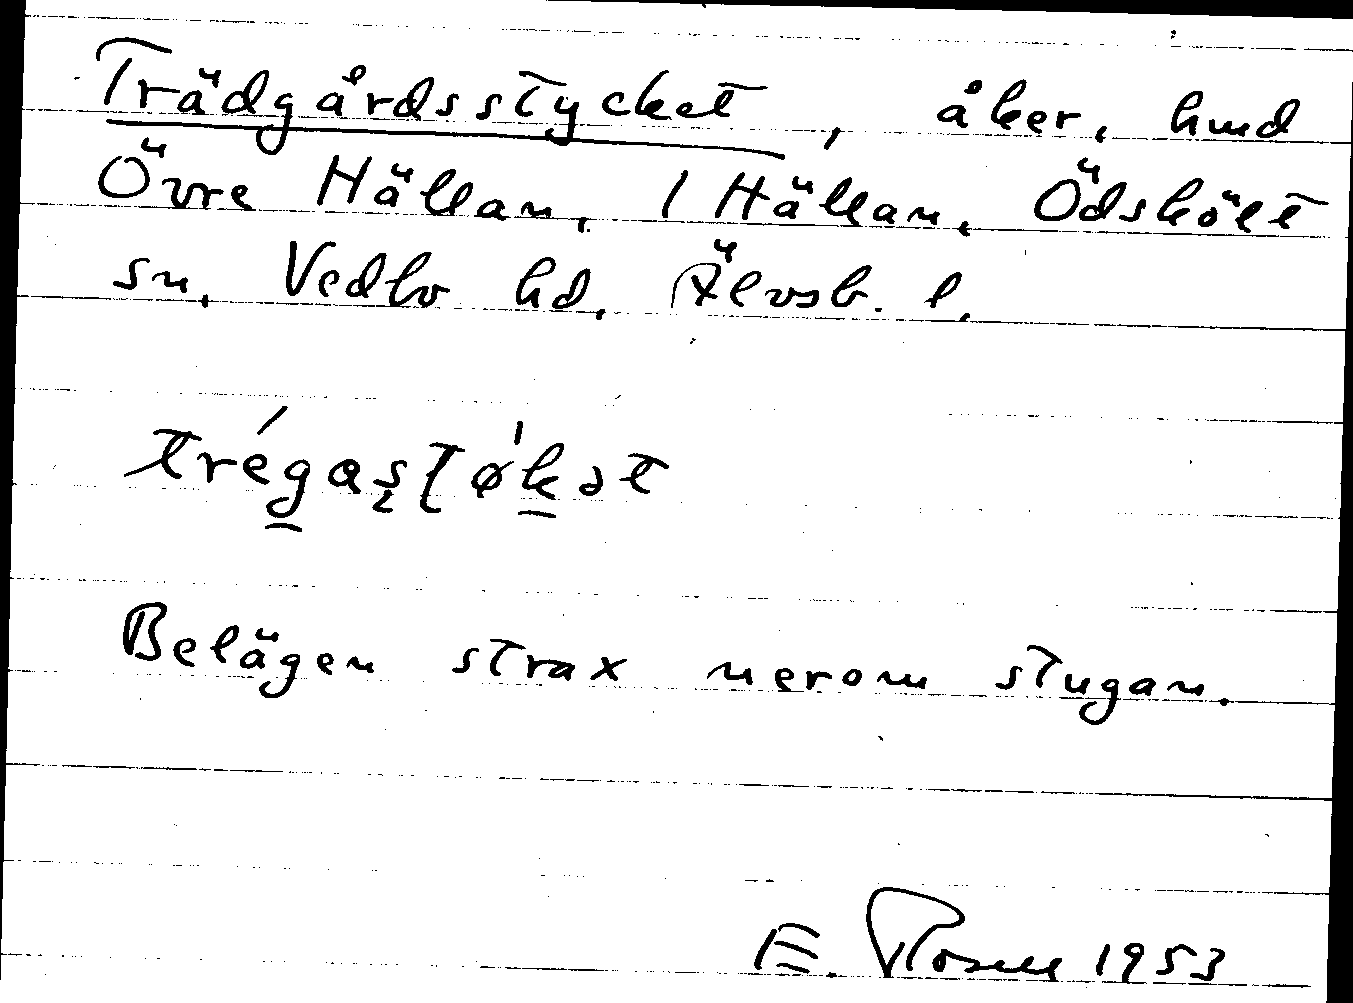 Trädgårdsstycket, åker, hmd
Övre Hällan, 1 Hällan, Ödsköłt
sn, Vedbo hd, Älvsb. l.
trégaʂʈøkət
Belägen strax nerom stugan.
E. Rosell 1953